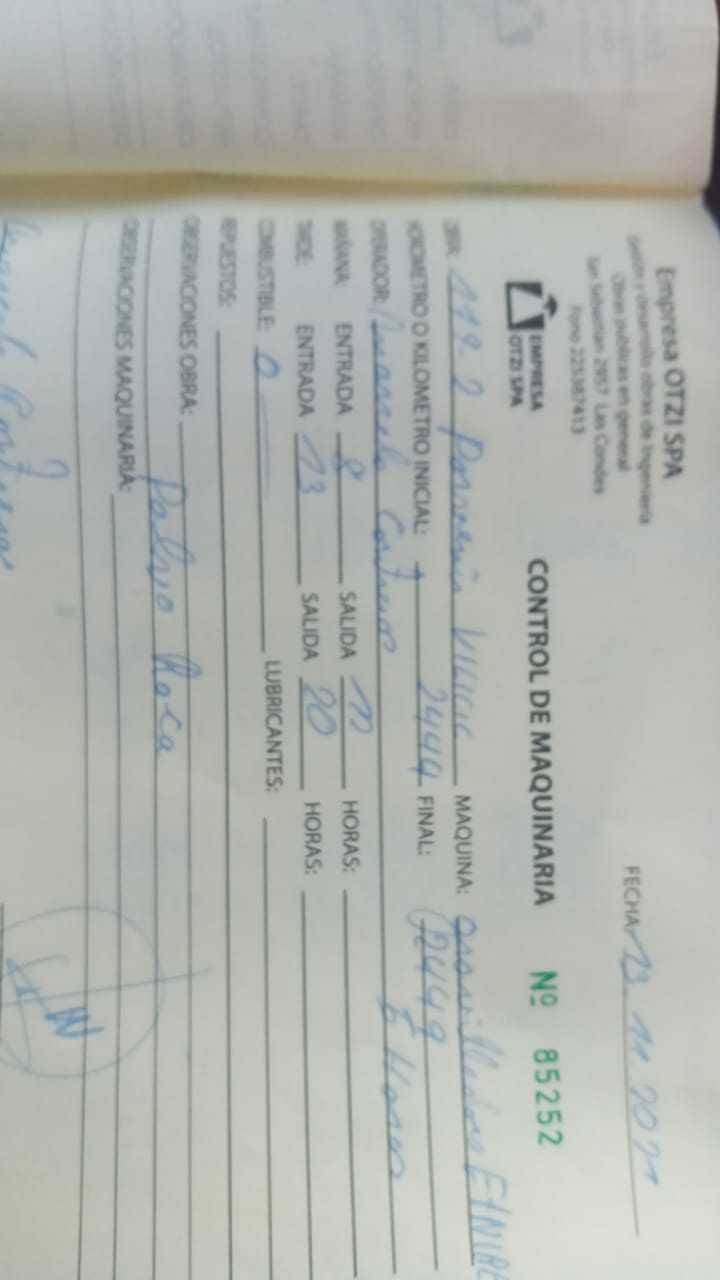 Empresa OTZI SPA
Gestión y desarrollo obras de Ingeniería
Obras publicas en general
San Sebastian 2957 Las Condes
Fono 225387413
FECHA: 13.11.2021
EMPRESA
OTZI SPA
CONTROL DE MAQUINARIA Nº 85252
OBRA: 119-2 Porvenir VILICIC MAQUINA: gravilladora EtNIRE
HOROMETRO O KILOMETRO INICIAL: 2444 FINAL: 2449
OPERADOR: Marcelo Contreras 5 Horas
MAÑANA: ENTRADA 8 SALIDA 11 HORAS:
TARDE: ENTRADA 13 SALIDA 20 HORAS:
COMBUSTIBLE: 0 LUBRICANTES:
REPUESTOS:
OBSERVACIONES OBRA:
Polvo Roca
OBSERVACIONES MAQUINARIA:
Marcelo Contreras